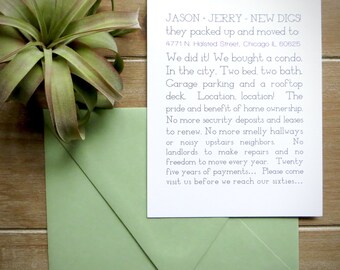 JASON + JERRY - NEW DIGS!
they packed up and moved to
4771 N. Halsted Street, Chicago IL 60625
We did it! We bought a condo.
In the city. Two bed, two bath.
Garage parking and a rooftop
deck. Location, location! The
pride and benefit of home ownership.
No more security deposits and leases
to renew. No more smelly hallways
or noisy upstairs neighbors. No
landlords to make repairs and no
freedom to move every year. Twenty
five years of payments... Please come
visit us before we reach our sixties...